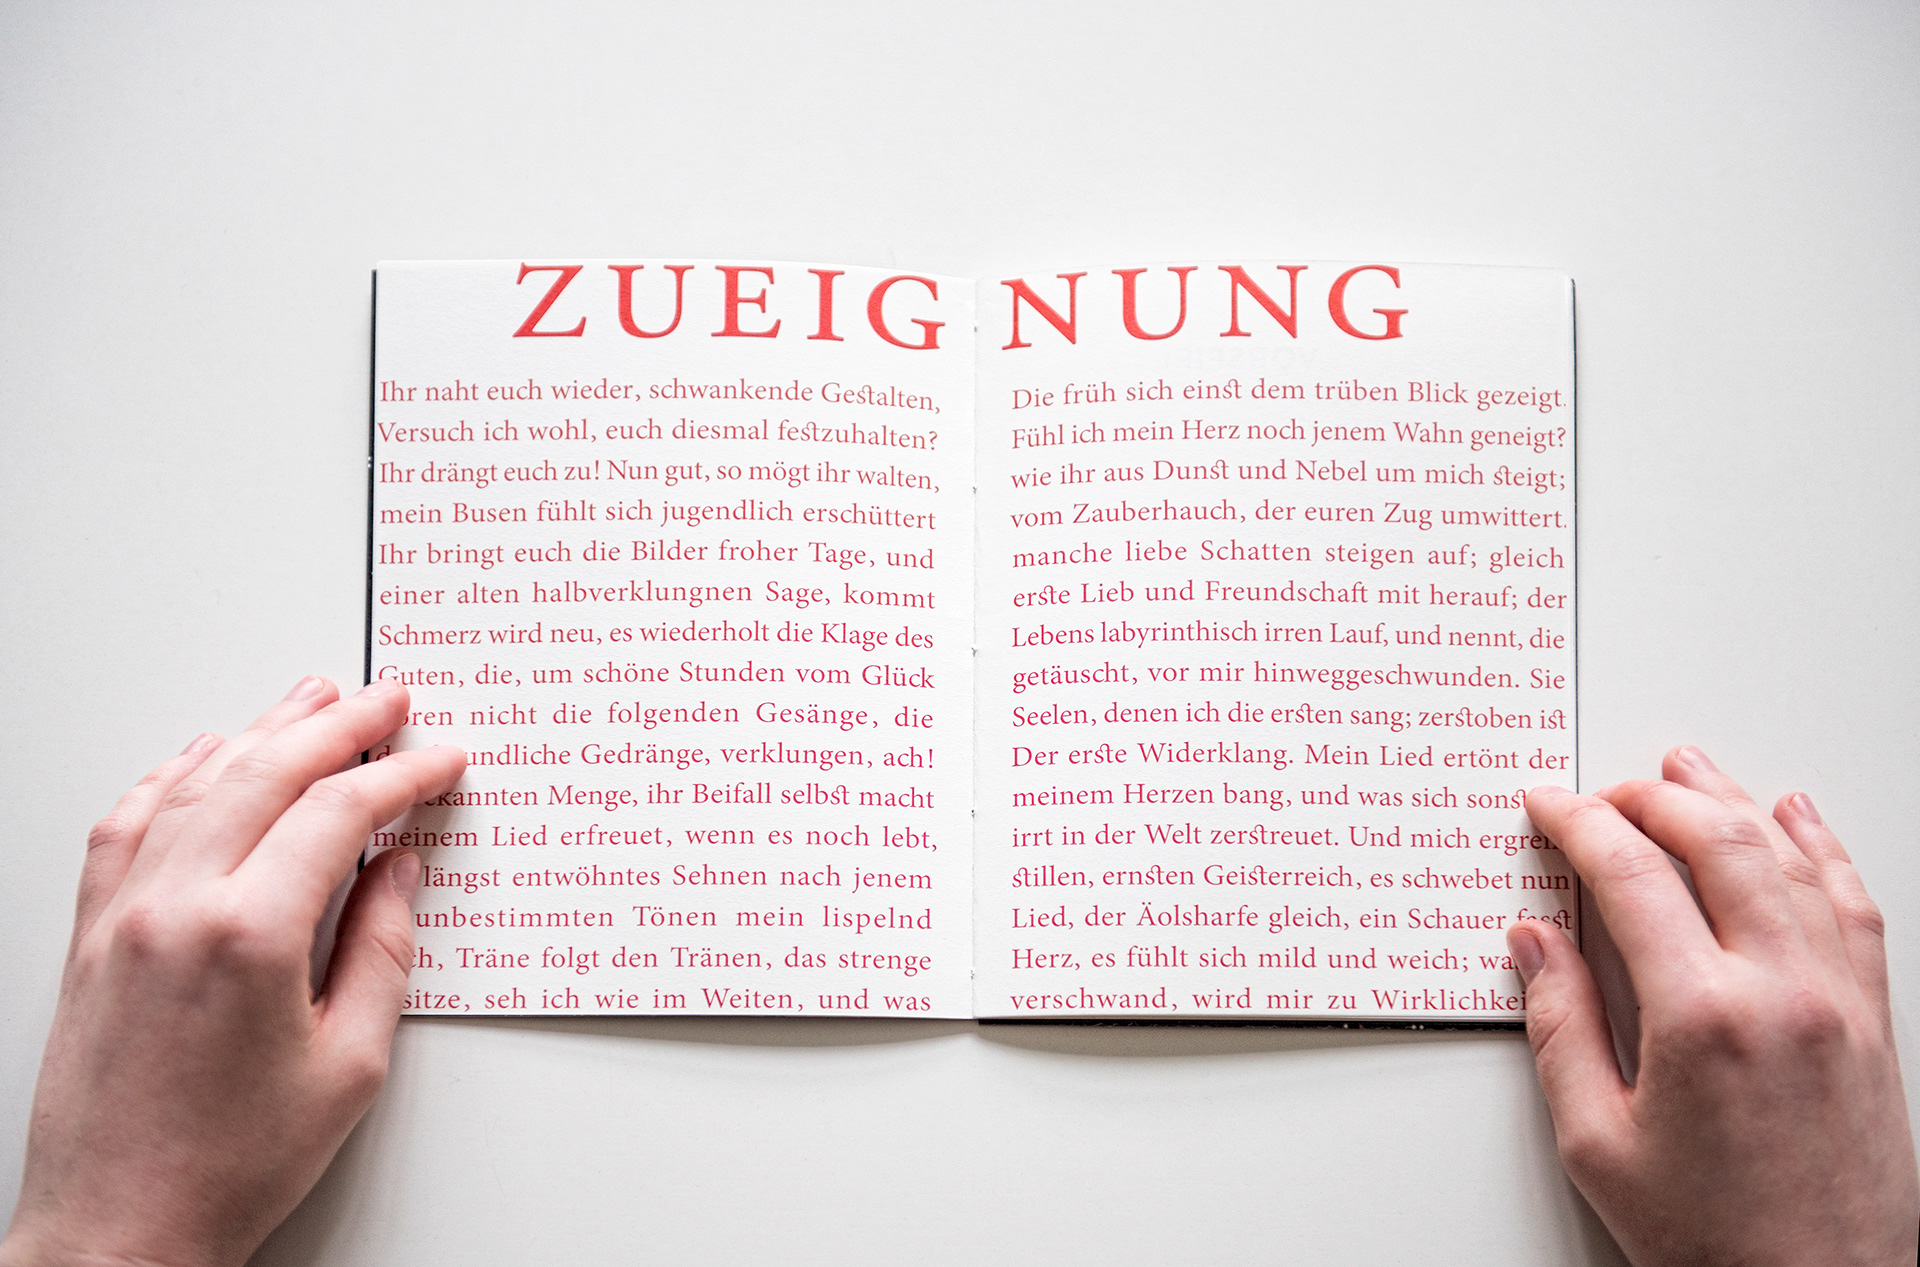 ZUEIGNUNG
Ihr naht euch wieder, schwankende Gestalten, Die früh sich einst dem trüben Blick gezeigt.
Versuch ich wohl, euch diesmal festzuhalten? Fühl ich mein Herz noch jenem Wahn geneigt?
Ihr drängt euch zu! Nun gut, so mögt ihr walten, wie ihr aus Dunst und Nebel um mich steigt;
mein Busen fühlt sich jugendlich erschüttert vom Zauberhauch, der euren Zug umwittert.
Ihr bringt euch die Bilder froher Tage, und manche liebe Schatten steigen auf; gleich
einer alten halbverklungnen Sage, kommt erste Lieb und Freundschaft mit herauf; der
Schmerz wird neu, es wiederholt die Klage des Lebens labyrinthisch irren Lauf, und nennt, die
Guten, die, um schöne Stunden vom Glück getäuscht, vor mir hinweggeschwunden. Sie
nicht die folgenden Gesänge, die Seelen, denen ich die ersten sang; zerstoben ist
Gedränge, verklungen, ach! Der erste Widerklang. Mein Lied ertönt der
Menge, ihr Beifall selbst macht meinem Herzen bang, und was sich sonst
meinem Lied erfreuet, wenn es noch lebt, irrt in der Welt zerstreuet. Und mich
längst entwöhntes Sehnen nach jenem stillen, ernsten Geisterreich, es schwebet nun
unbestimmten Tönen mein lispelnd Lied, der Äolsharfe gleich, ein Schauer fasst
Träne folgt den Tränen, das strenge Herz, es fühlt sich mild und weich;
seh ich wie im Weiten, und was verschwand, wird mir zu